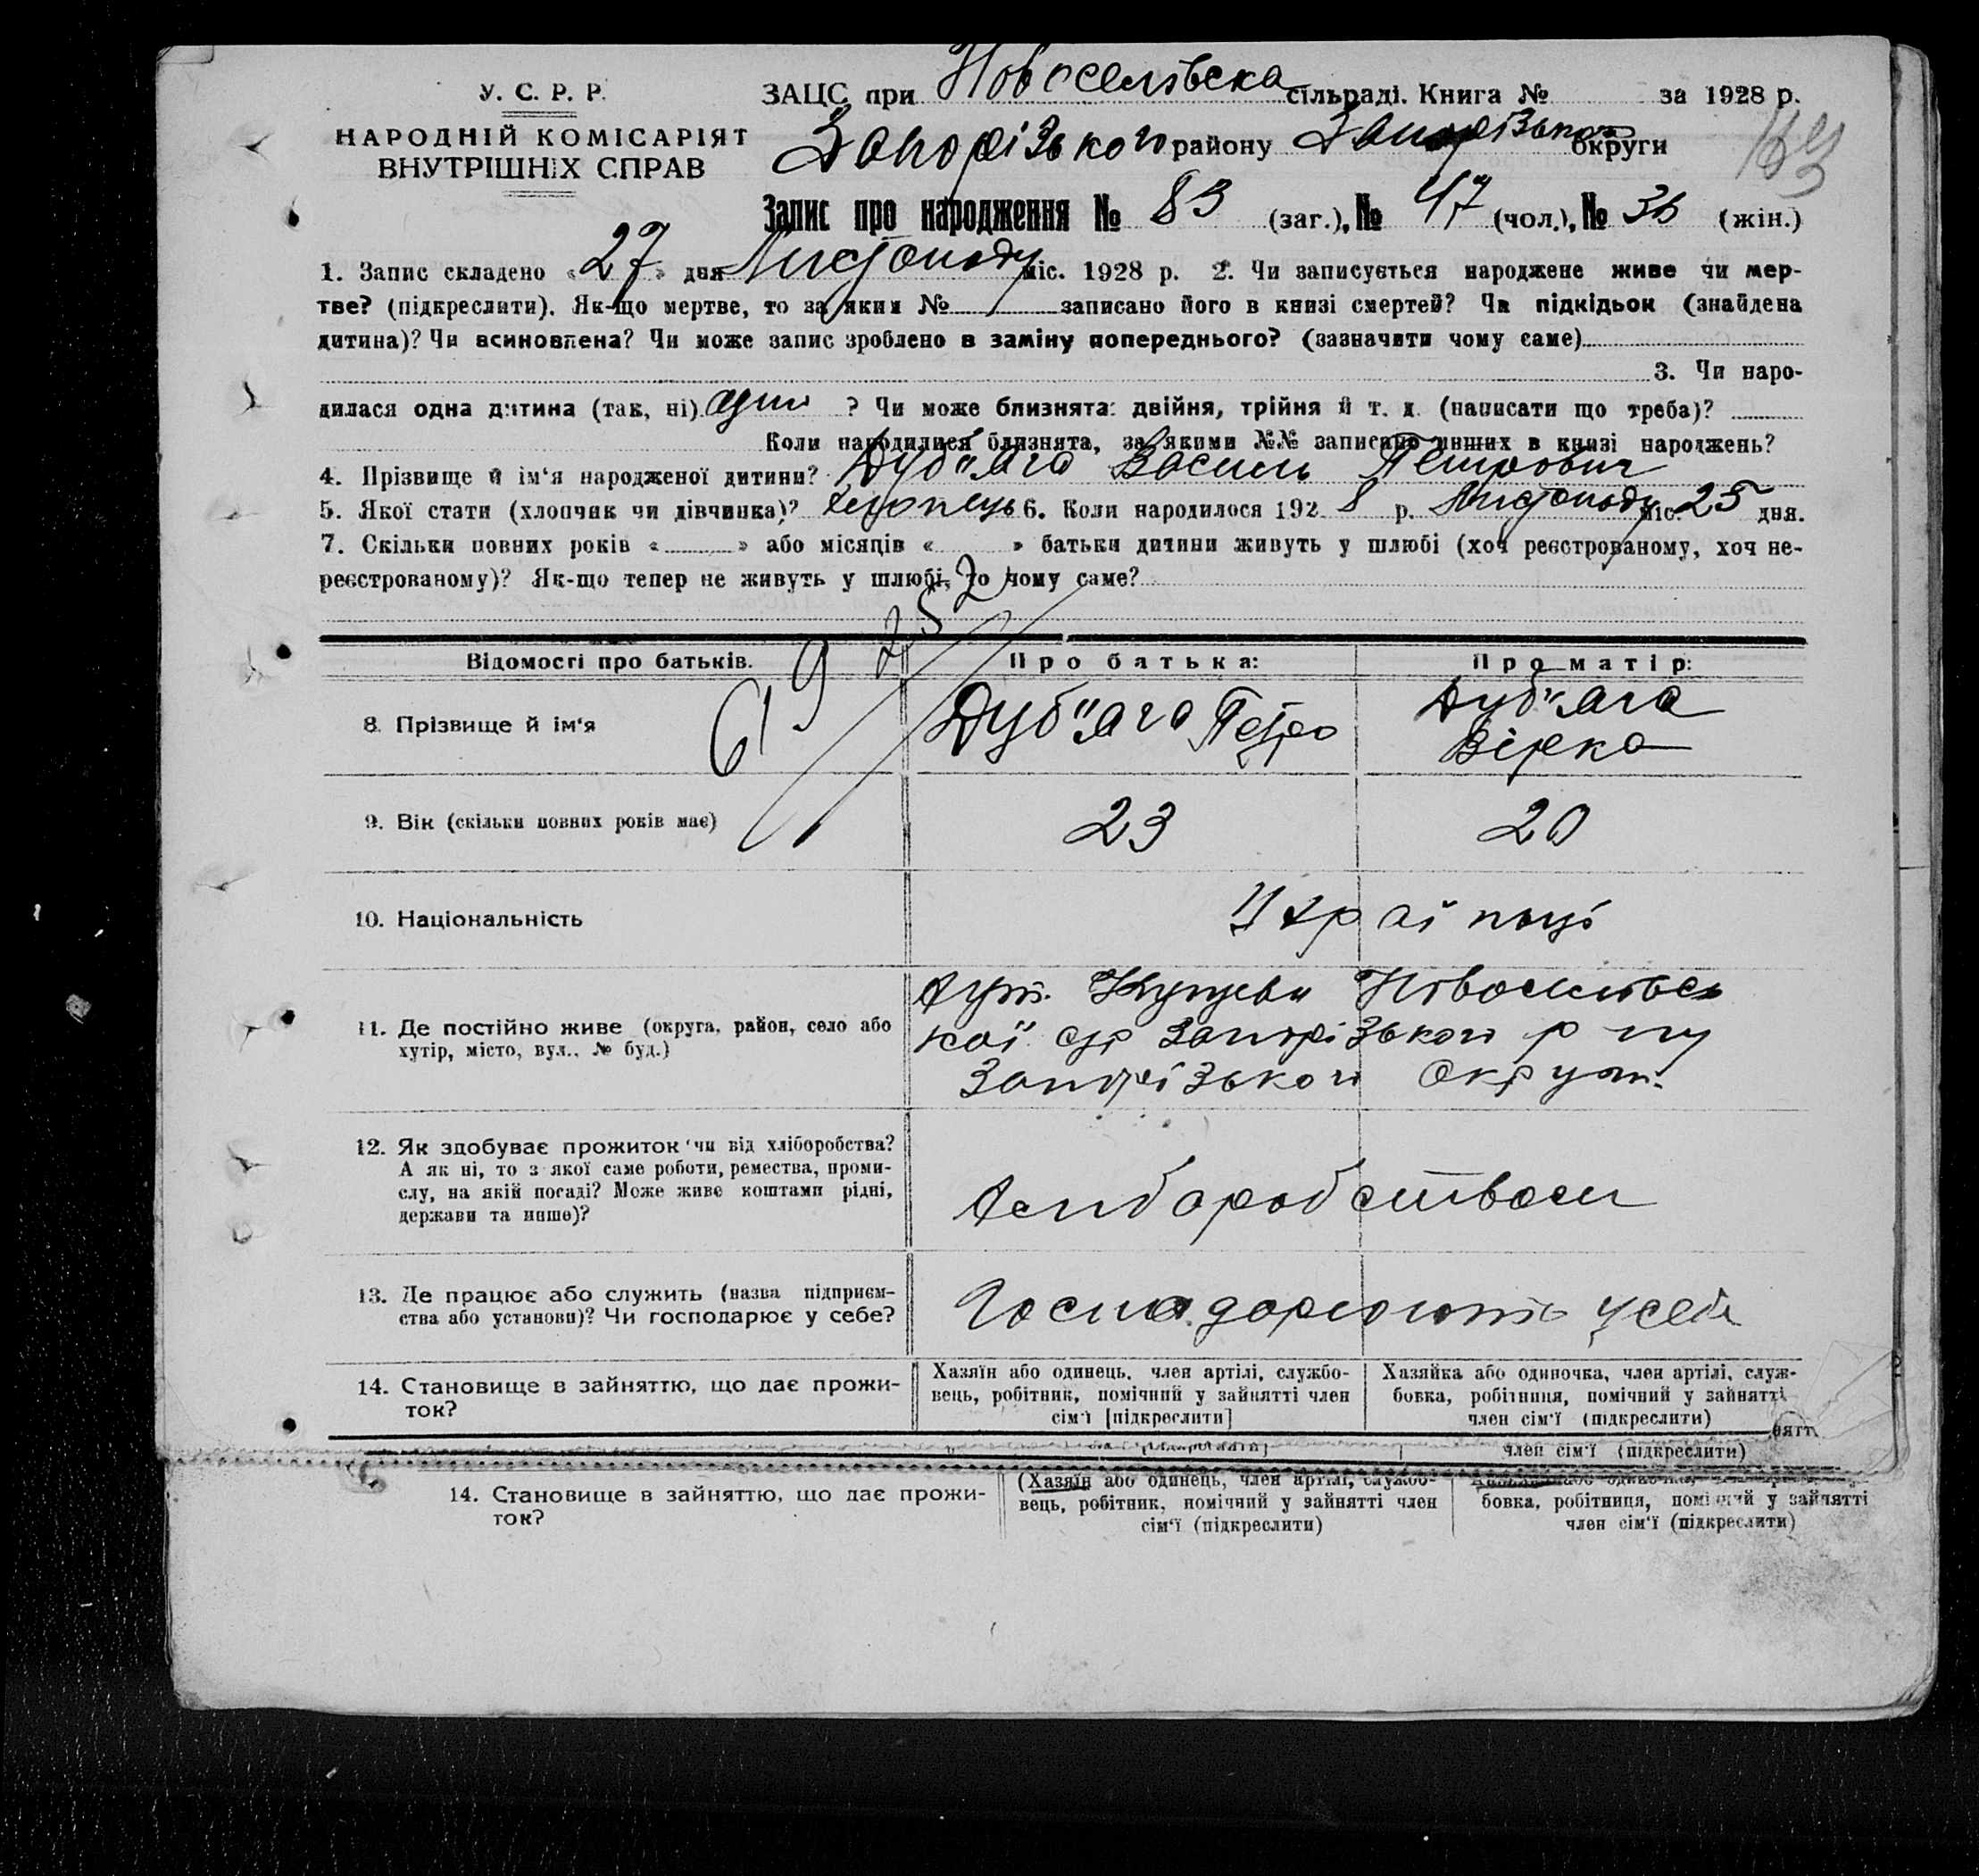 У. С. Р. Р.
НАРОДНІЙ КОМІСАРІЯТ
ВНУТРІШНІХ СПРАВ
ЗАЦС при Новоселівська сільраді. Книга № за 1928 р.
Запорізького району Запорізької округи
Запис про народження № 83 (заг.), № 47 (чол.), № 36 (жін.)
1. Запис складено « 27 » дня Листопаду міс. 1928 р. 2. Чи записується народжене живе чи мер-
тве? (підкреслити). Як-що мертве, то за яким № записано його в книзі смертей? Чи підкідьок (знайдена
дитина)? Чи всиновлена? Чи може запис зроблено в заміну попереднього? (зазначити чому саме)
3. Чи наро-
дилася одна дитина (так, ні) одна ? Чи може близнята: двійня, трійня й т. д. (написати що треба)?
Коли народилися близнята, за якими №№ записано инших в книзі народжень?
4. Прізвище й ім'я народженої дитини? Дуб"яга Василь Петрович
5. Якої стати (хлопчик чи дівчинка)? хлопець 6. Коли народилося 192 8 р. Листопаду міс. 25 дня.
7. Скільки повних років « » або місяців « » батьки дитини живуть у шлюбі (хоч реєстрованому, хоч не-
реєстрованому)? Як-що тепер не живуть у шлюбі, то чому саме?
2
Відомості про батьків. Про батька: Про матір:
8. Прізвище й ім'я Дуб"яга Петро Дуб"яга Вірка
9. Вік (скільки повних років має) 23 20
10. Національність Українці
11. Де постійно живе (округа, район, село або
хутір, місто, вул., № буд.)
хут. Новоселівсь
кої с/р Запорізького р ну
Запорізького Округи.
12. Як здобуває прожиток чи від хліборобства?
А як ні, то з якої саме роботи, ремества, проми-
слу, на якій посаді? Може живе коштами рідні,
держави та инше)?
хлибаробством
13. Де працює або служить (назва підприєм-
ства або установи)? Чи господарює у себе?
Господарюють у себе
14. Становище в зайняттю, що дає прожи-
ток?
Хазяїн або одинець, член артілі, службо-
вець, робітник, помічний у зайнятті член
сім'ї [підкреслити]
Хазяйка або одиночка, член артілі, служ-
бовка, робітниця, помічний у зайнятті
член сім'ї (підкреслити)
член сім'ї (підкреслити)
14. Становище в зайняттю, що дає прожи-
ток?
(Хазяїн або одинець, член артілі, службо-
вець, робітник, помічний у зайнятті член
сім'ї (підкреслити)
бовка, робітниця, помічний у зайнятті
член сім'ї (підкреслити)